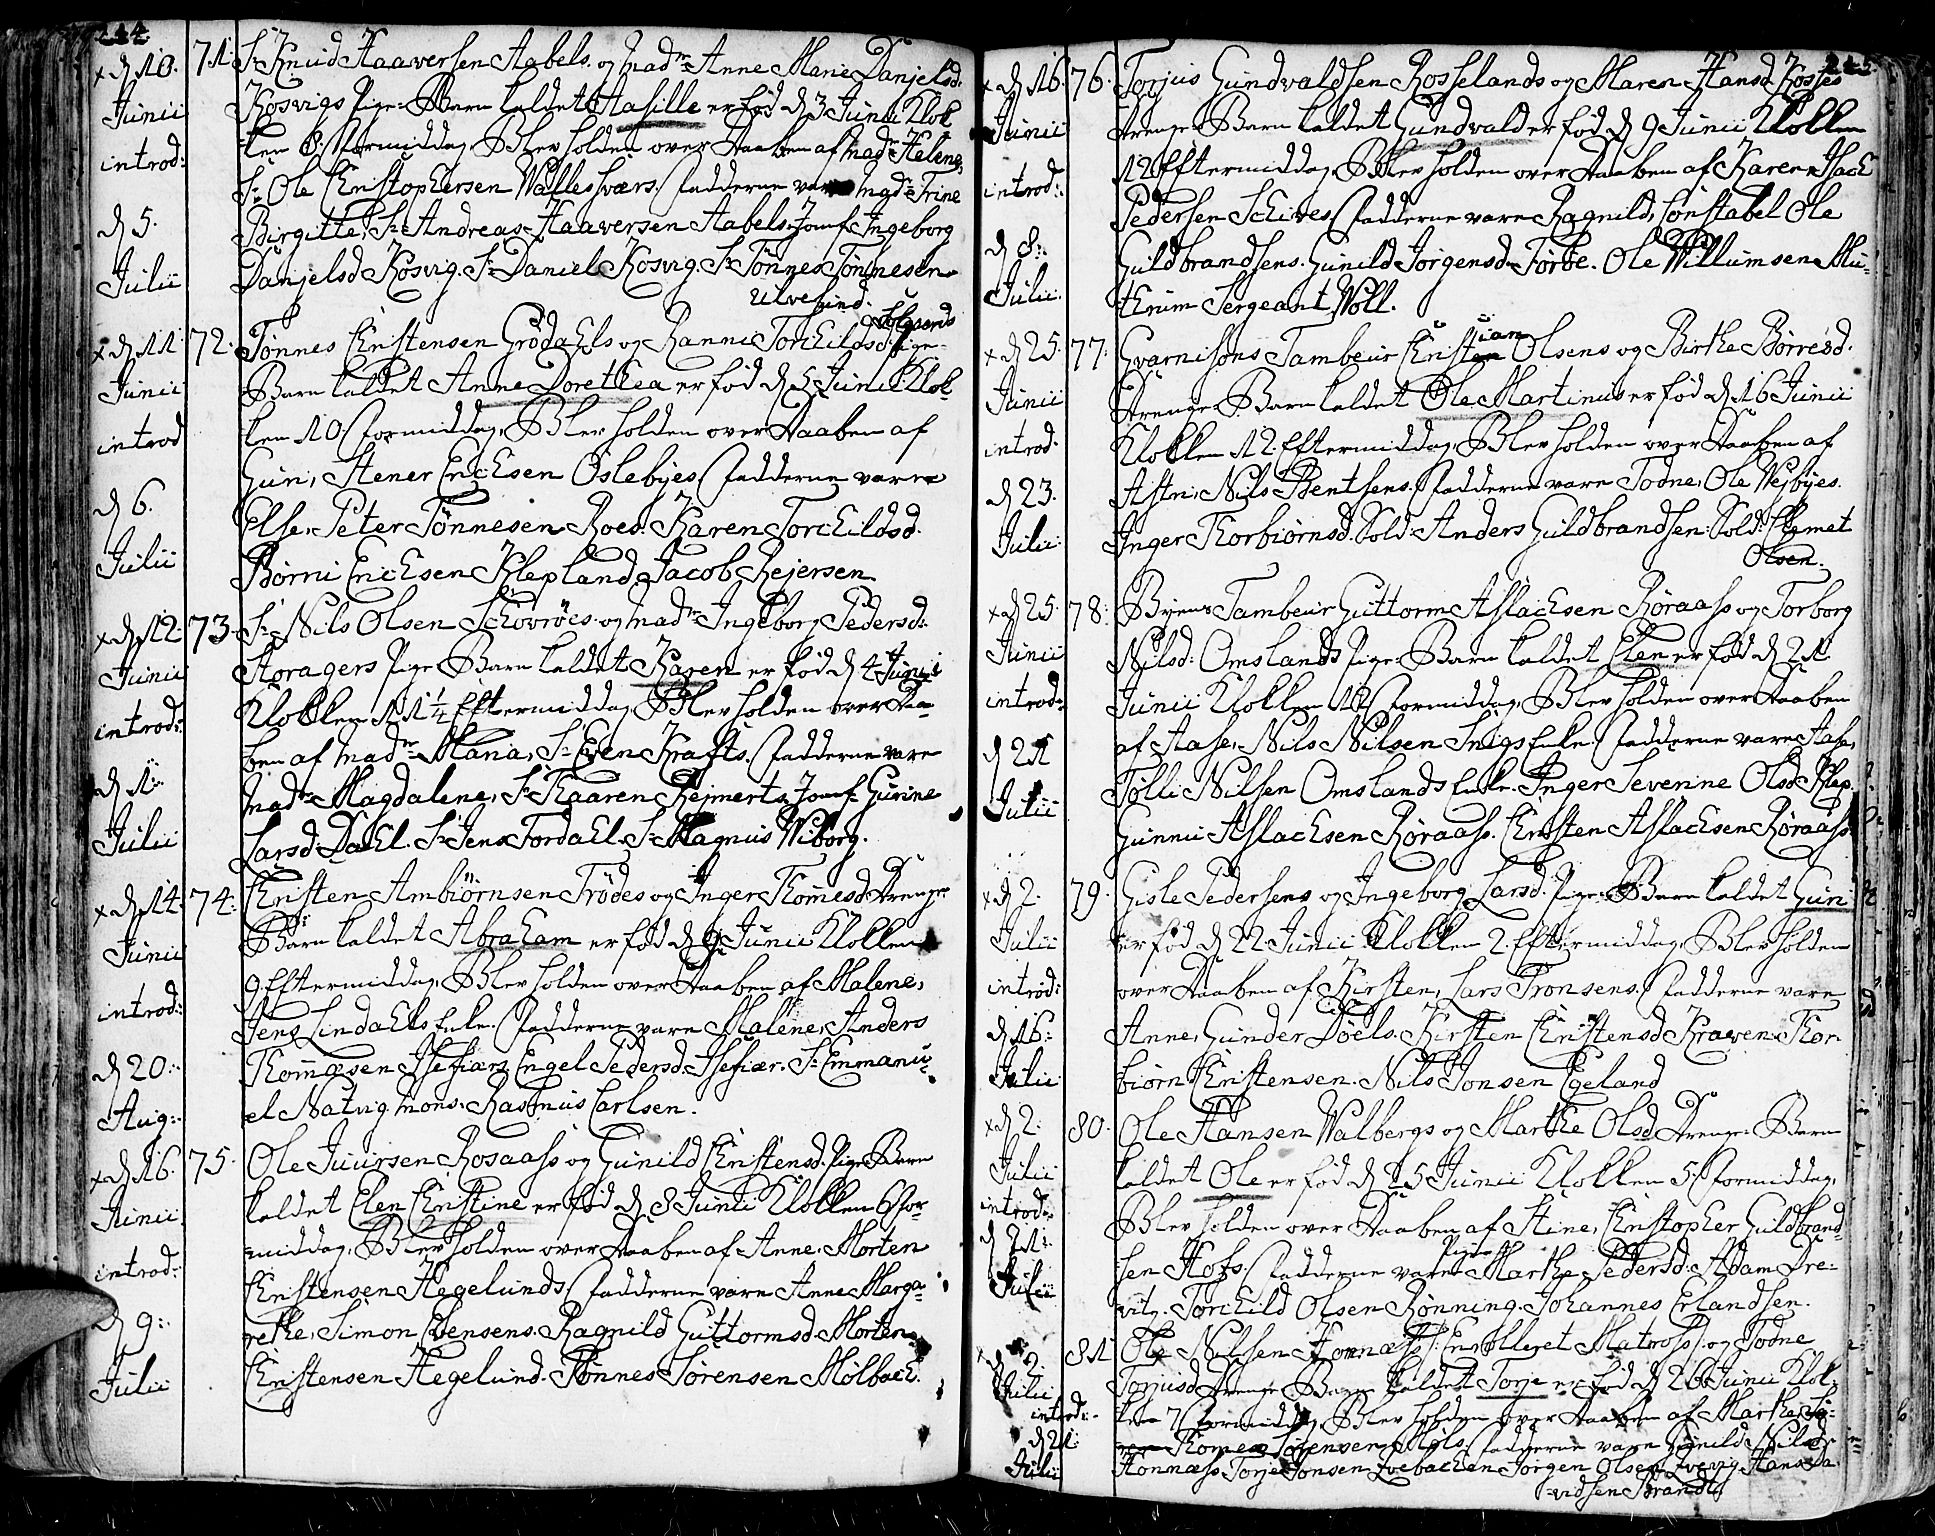 244.
x d 10. Junii introd: d 5. Julii
71. Sr Knud Haaversen Aabels. og Madme Anne Marie Danjelsd:
Kosvigs Pige-Barn kaldet Aasille er fød d 3 Junii Klok
ken 8 Formiddag, Blev holden over Daaben af Madme Helene,
Sr Ole Christophersen Wallesværs. Fadderne vare Madme Trine
Birgitte, Sr Andreas Haaversen Aabels. Jomf: Ingeborg
Danjelsd Kosvig. Sr Daniel Kosvig. Sr Tønnes Tønnesen
Ulvesund.
x d 11. Junii introd d 6. Julii
72. Tønnes Christensen Grødahls og Ranni Torchildsd: Pige-
Barn kaldet Anne Dorethea er fød d 5 Junii Klok-
ken 10 Formiddag, Blev holden over Daaben af
Guri, Stener Erichsen Oslebyes. Fadderne vare
Else, Peter Tønnesen Roed. Karen Torchildsd.
Børni Erichsen Klepland. Jacob Rejersen
x d 12 Junii introd: d 1. Julii
73. Sr Nils Olsen Schovroes og Madme Ingeborg Pedersd:
Storagers Pige-Barn kaldet Karen er fød d 4 Junii
Klokken 11 1/4 Eftermiddag, Blev holden over Daa-
ben af Madme Maria, Sr Even Krafts. Fadderne vare
Madme Magdalene, Sr Kaaren Rejmerts. Jomf: Gurine
Larsd: Dahl. Sr Jens Fordahl. Sr Magnus Wiborg.
x d 14. Junii introd: d 20. Aug:
74. Christen Ambiörnsen Trødes og Inger Thomesd Drenge
Barn kaldet Abraham er fød d 9 Junii Klokken
9 Eftermiddag, Blev holden over Daaben af Malene,
Jens Lindahls Enke. Fadderne vare Malene, Anders
Thommesen Isefiær. Engel Pedersd. Isefiær. Sr Emmanu-
el Natvig. Mons: Rasmus Carlsen.
x d 16. Junii introd: d 9. Julii
75. Ole Juursen Rosaass og Gunild Christensd. Pige-Barn
kaldet Elen Christine er fød d 8 Junii Klokken 6 For-
middag, Blev holden over Daaben af Anne, Morten
Christensen Hegelunds. Fadderne vare Anne Marga-
rethe, Simon Evensens. Ragnild Guttormsd. Morten
Christensen Hegelund. Tønnes Sørensen Mølbach.
245
x d 16. Junii introd: d 8. Julii
76. Torjus Gundvaldsen Rosselands og Maren Hansd Kosses
Drenge-Barn kaldet Gundvald er fød d 9 Junii Klokken
12 Eftermiddag, Blev holden over Daaben af Karen, Isach
Pedersen Schives. Fadderne vare Ragnild, Constabel Ole
Guldbrandsens. Gunild Jørgensd. Torbe. Ole Willumsen Mu-
Sergeant Noll.
x d 25. Junii introd. d 23. Julii
77. Gvarnisons Tambeur Christian Olsens og Birthe Børresd.
Drenge-Barn kaldet Ole Martinus er fød d 16 Junii
Klokken 12. Eftermiddag, Blev holden over Daaben af
Astri, Nils Bentsens. Fadderne vare Todne, Ole Wejbyes.
Inger Thorbiørnsd. Sold: Anders Guldbrandsen. Sold:
Olsen.
x d 25 Junii introd: d 21 Julii
78. Byens Tambeur Guttorm Aslachsen Røraass og Torborg
Nilsd: Omslands Pige-Barn kaldet Elen er fød d 21
Junii Klokken 12 Formiddag, Blev holden over Daaben
af Aase, Nils Nilsen Snigs Enke. Fadderne vare Aase,
Tolli Nilsen Omslands Enke. Inger Severine Olsd Klep.
Gunnu Aslachsen Røraass. Christen Aslachsen Røraass.
x d 2. Julii introd: d 16. Julii
79. Gisle Pedersens og Ingeborg Larsd. Pige-Barn kaldet Guri
er fød d 22 Junii Klokken 2. Eftermiddag, Blev holden
over Daaben af Kirsten, Lars Tronsens. Fadderne vare
Anne, Gunder Døels. Kirsten Christensd Kraven. Thor
biørn Christensen. Nils Jonsen Egeland
x d 2. Julii introd: d 21. Julii
80. Ole Hansen Walbergs og Marthe Olsd Drenge-Barn
kaldet Ole er fød d 25 Junii Klokken 5 Formiddag,
Blev holden over Daaben af Stine, Christopher Guldbrand-
sen Hofs. Fadderne vare Pigen Marthe Pedersd. Adam Dre-
vitz. Torchild Olsen Rønning. Johannes Erlandsen.
d 2. Julii introd: d 21. Julii
81 Ole Nilsen Honnæss. Enrolleret Matross. og Todne
Torjusd Drenge-Barn kaldet Torje er fød d 26 Junii Klok-
ken 7 Formiddag, Blev holden over Daaben af Marthe,
Thomes Sørensen Møls. Fadderne vare Gunild Nilsd
Honnæss. Torje Jonsen Jørgen Olsen Hans Da
vidsen Strandt.